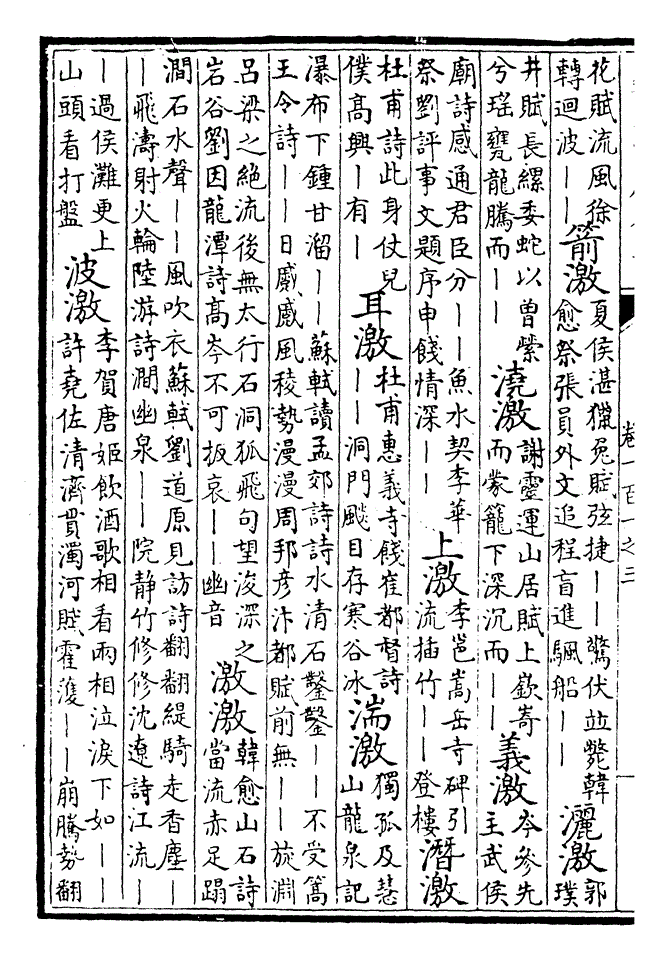 花賦流風徐
轉迴波｜｜
箭激
夏侯湛獵兔賦弦捷｜｜驚伏竝斃韓
愈祭張員外文追程盲進颿船｜｜
灑激
郭
璞
井賦長縲委蛇以曾縈
兮瑤甕龍騰而｜｜
澆激
謝靈運山居賦上嶔嵜
而蒙籠下深沉而｜｜
義激
岑參先
主武侯
廟詩感通君臣分｜｜魚水契李華
祭劉評事文題序申餞情深｜｜
上激
李邕嵩岳寺碑引
流插竹｜｜登樓
潛激
杜甫詩此身仗兒
僕高興｜有｜
耳激
杜甫惠義寺餞崔都督詩
｜｜洞門颷目存寒谷冰
湍激
獨孤及慧
山龍泉記
瀑布下鍾甘溜｜｜蘇軾讀孟郊詩詩水清石鑿鑿｜｜不受篙
王令詩｜｜日嚴嚴風稜勢漫漫周邦彥汴都賦前無｜｜旋淵
呂梁之絕流後無太行石洞狐飛句望浚深之
岩谷劉因龍潭詩高岑不可扳哀｜｜幽音
激激
韓愈山石詩
當流赤足蹋
澗石水聲｜｜風吹衣蘇軾劉道原見訪詩翻翻緹騎走香塵｜
｜飛濤射火輪陸游詩澗幽泉｜｜院靜竹修修沈遼詩江流｜
｜過侯灘更上
山頭看打盤
波激
李賀唐姬飲酒歌相看兩相泣淚下如｜｜
許堯佐清濟貫濁河賦霍濩｜｜崩騰勢翻